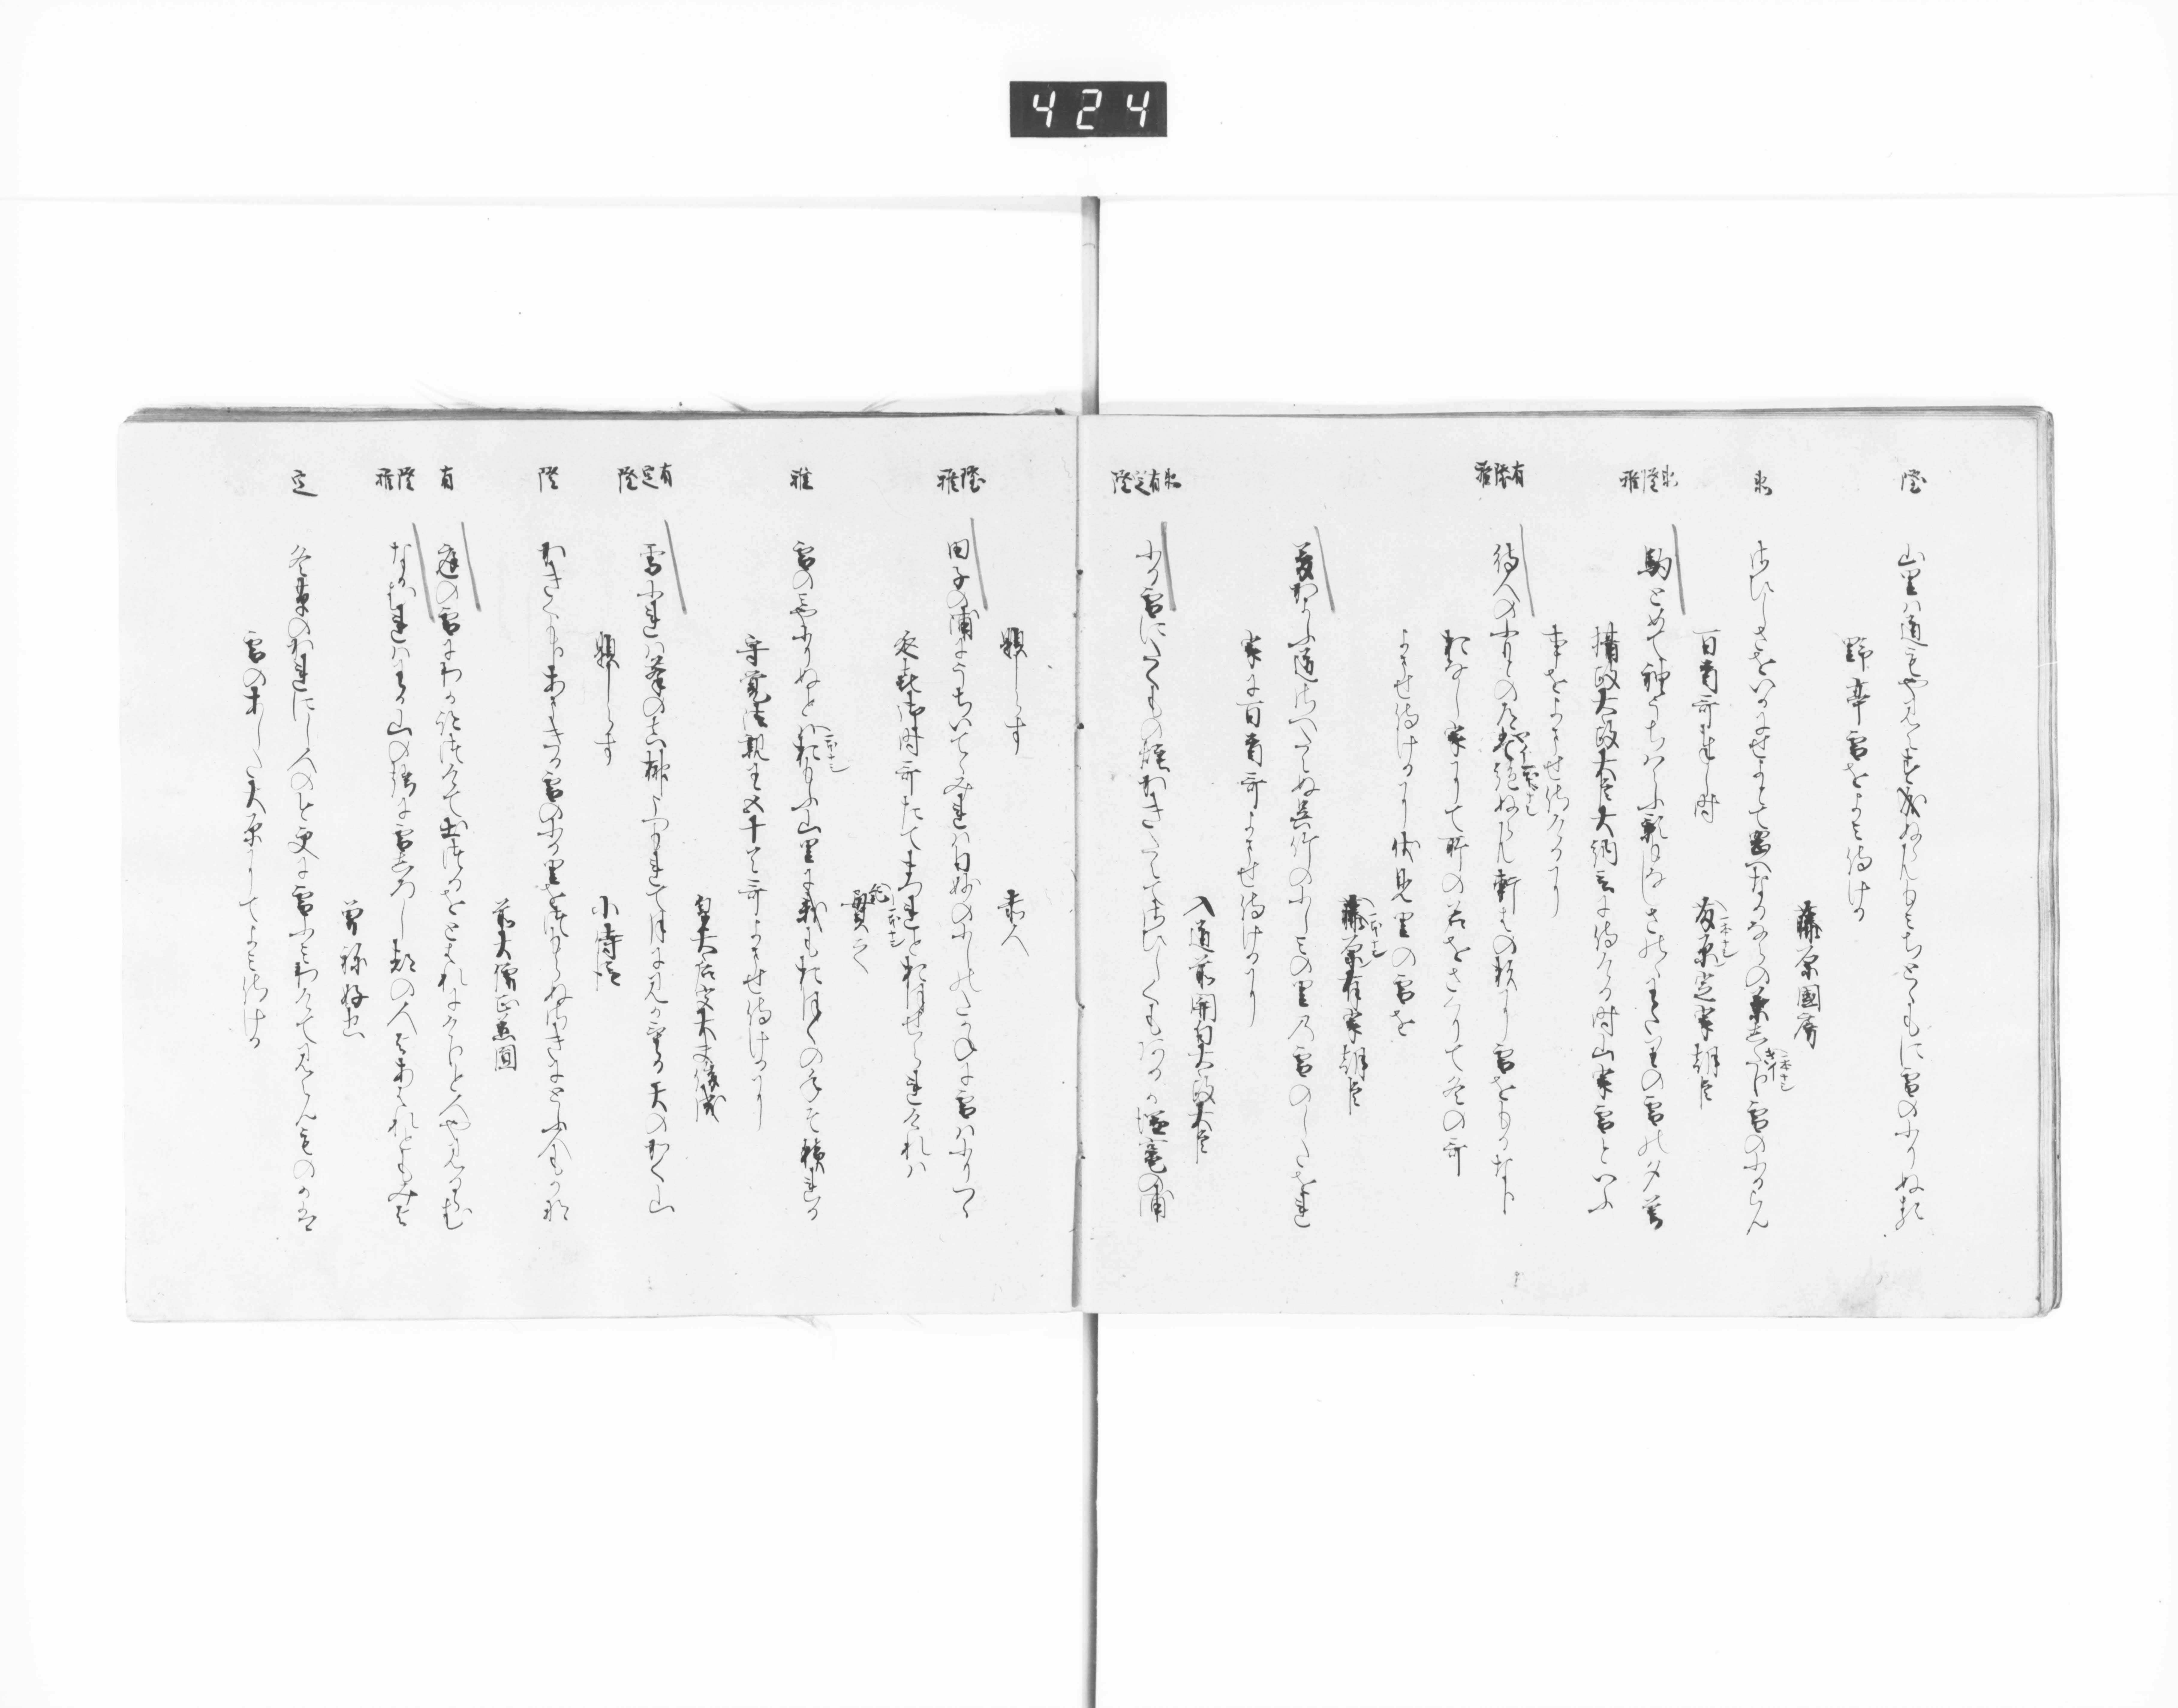 424
隆 山里は道もや見えす成ぬらんもみちとともに雪のふりぬる
野亭雪をよみ侍ける
藤原國房
さひしさをいかにせよとて岡へなるならの葉したり雪のふるらん
百首哥奉し時 藤原定家朝臣
駒とめて袖うちはらふ影もなしさのゝわたりの雪の夕暮
摂政太政大臣大納言に侍ける時山家雪といふ
事をよませ侍けるに
有隆雅 待人のふもとの道は絶ぬらん軒はの杉に雪をもるなり
おなし家にて所の名をさくりて冬の哥
よませ侍けるに伏見里の雪を
藤原有家朝臣
夢かよふ道さへたえぬ呉竹のふしみの里の雪のしたをれ
家に百首哥よませ侍けるに
入道前関白太政大臣
ふる雪にたくもの煙かきたえてさひしくもあるか塩竈の浦
題しらす 赤人
隆雅 田子の浦にうちいてゝみれは白妙のふしのたかねに雪はふりつゝ
延喜御時哥たてまつれとおほせられけれは
紀貫之
雅 雪のみやふりぬとはおもふ山里に我もおほくの年そ積れる
守覚法親王五十首哥よませ侍けるに
皇太后宮大夫俊成
有定隆 雪ふれは峯のまさかきうつもれて月にみかける天のかく山
題しらす 小侍従
隆 かきくもりあまきる雪のふる里をつもらぬさきにとふ人もかな
前大僧正慈圓
有 庭の雪にわか跡つけて出つるをとはれにけりと人や見るらむ
隆雅 なかむれはわか山の端に雪しろし都の人よあはれとも見よ
曽祢好忠
定 冬草のかれにし人の今更に雪ふみわけて見えんものかは
雪のあした大原にてよみ侍ける